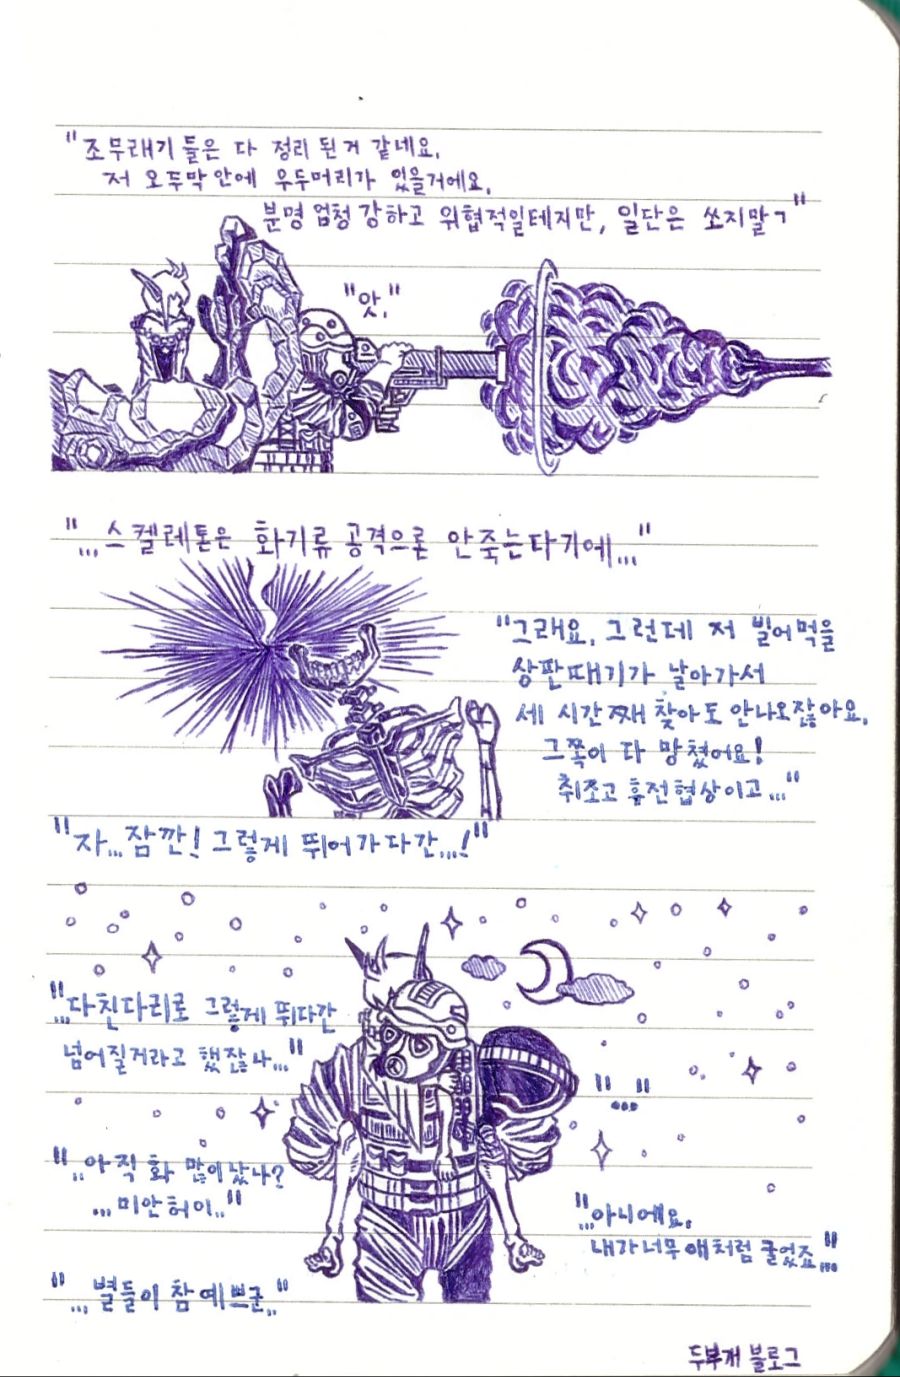 "조무래기들은 다 정리된거 같네요.
저 오두막안에 우두머리가 있을거에요.
분명 엄청 강하고 위협적일테지만, 일단은 쏘지말ㄱ"
"앗."
"...스켈레톤은 화기류 공격으론 안죽는다기에..."
"그래요. 그런데 저 빌어먹을
상판때기가 날아가서
세 시간째 찾아도 안나오잖아요.
그쪽이 다 망쳤어요!
취조고 휴전협상이고..."
"자...잠깐! 그렇게 뛰어가다간...!"
"...다친다리로 그렇게 뛰다간
넘어질거라고 했잖나..."
"..."
"..아직 화 많이났나?
...미안허이.."
"...아니에요.
내가너무 애처럼 굴었죠..."
"...별들이 참 예쁘군.."
두부개 블로그